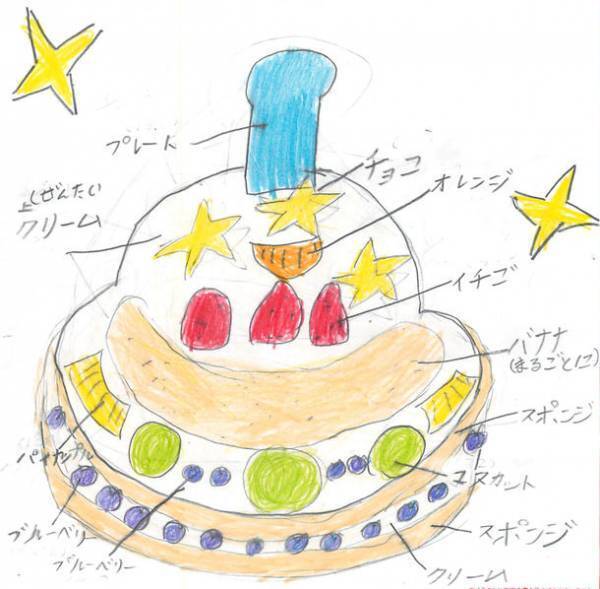 プレート
チョコ
オレンジ
ぜんたい
クリーム
イチゴ
バナナ
(まるごと1こ)
スポンジ
パイナップル
マスカット
ブルーベリー
スポンジ
ブルーベリー
クリーム